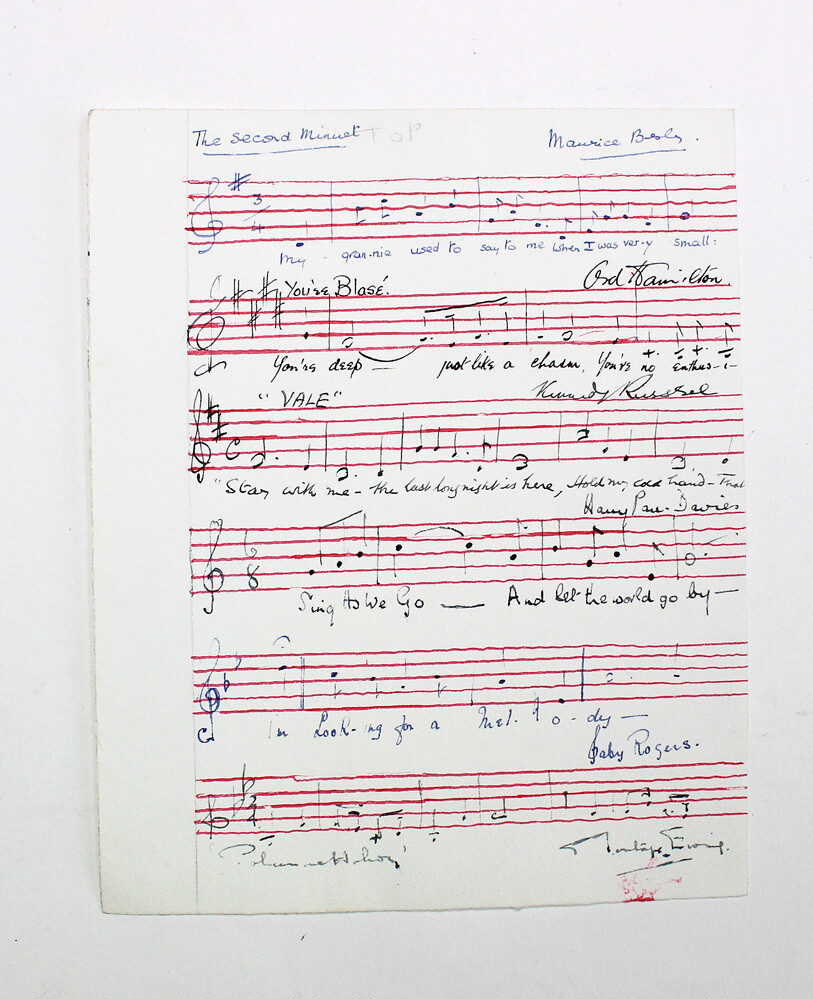 The Second Minuet TOP Maurice Besly.
3
4
My gran-nie used to say to me when I was ver-y small:
"You're Blasé." Ord Hamilton.
You're deep — just like a chasm, You're no enthus-i-
"VALE" Kennedy Russell
C
"Stay with me - the last long night is here, Hold my cold hand - That
Harry Parr-Davies
6
8
Sing As We Go — And let the world go by —
I'm Look-ing for a Mel-o-dy —
Gaby Rogers.
2
4
Montague Ewing.